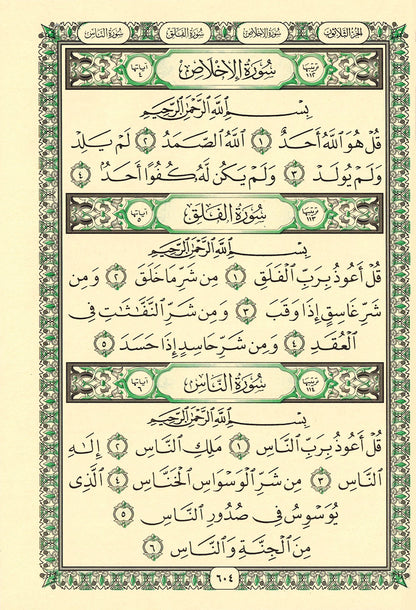 الجزء الثلاثون سورة الإخلاص سورة الفلق سورة الناس
ترتيبها ١١٢ سُورَةُ الإِخْلَاصِ آياتها ٤
بِسْمِ اللَّهِ الرَّحْمَٰنِ الرَّحِيمِ
قُلْ هُوَ اللَّهُ أَحَدٌ ١ اللَّهُ الصَّمَدُ ٢ لَمْ يَلِدْ
وَلَمْ يُولَدْ ٣ وَلَمْ يَكُن لَّهُ كُفُوًا أَحَدٌ ٤
ترتيبها ١١٣ سُورَةُ الفَلَقِ آياتها ٥
بِسْمِ اللَّهِ الرَّحْمَٰنِ الرَّحِيمِ
قُلْ أَعُوذُ بِرَبِّ الْفَلَقِ ١ مِن شَرِّ مَا خَلَقَ ٢ وَمِن
شَرِّ غَاسِقٍ إِذَا وَقَبَ ٣ وَمِن شَرِّ النَّفَّاثَاتِ فِي
الْعُقَدِ ٤ وَمِن شَرِّ حَاسِدٍ إِذَا حَسَدَ ٥
ترتيبها ١١٤ سُورَةُ النَّاسِ آياتها ٦
بِسْمِ اللَّهِ الرَّحْمَٰنِ الرَّحِيمِ
قُلْ أَعُوذُ بِرَبِّ النَّاسِ ١ مَلِكِ النَّاسِ ٢ إِلَٰهِ
النَّاسِ ٣ مِن شَرِّ الْوَسْوَاسِ الْخَنَّاسِ ٤ الَّذِي
يُوَسْوِسُ فِي صُدُورِ النَّاسِ ٥
مِنَ الْجِنَّةِ وَالنَّاسِ ٦
٦٠٤